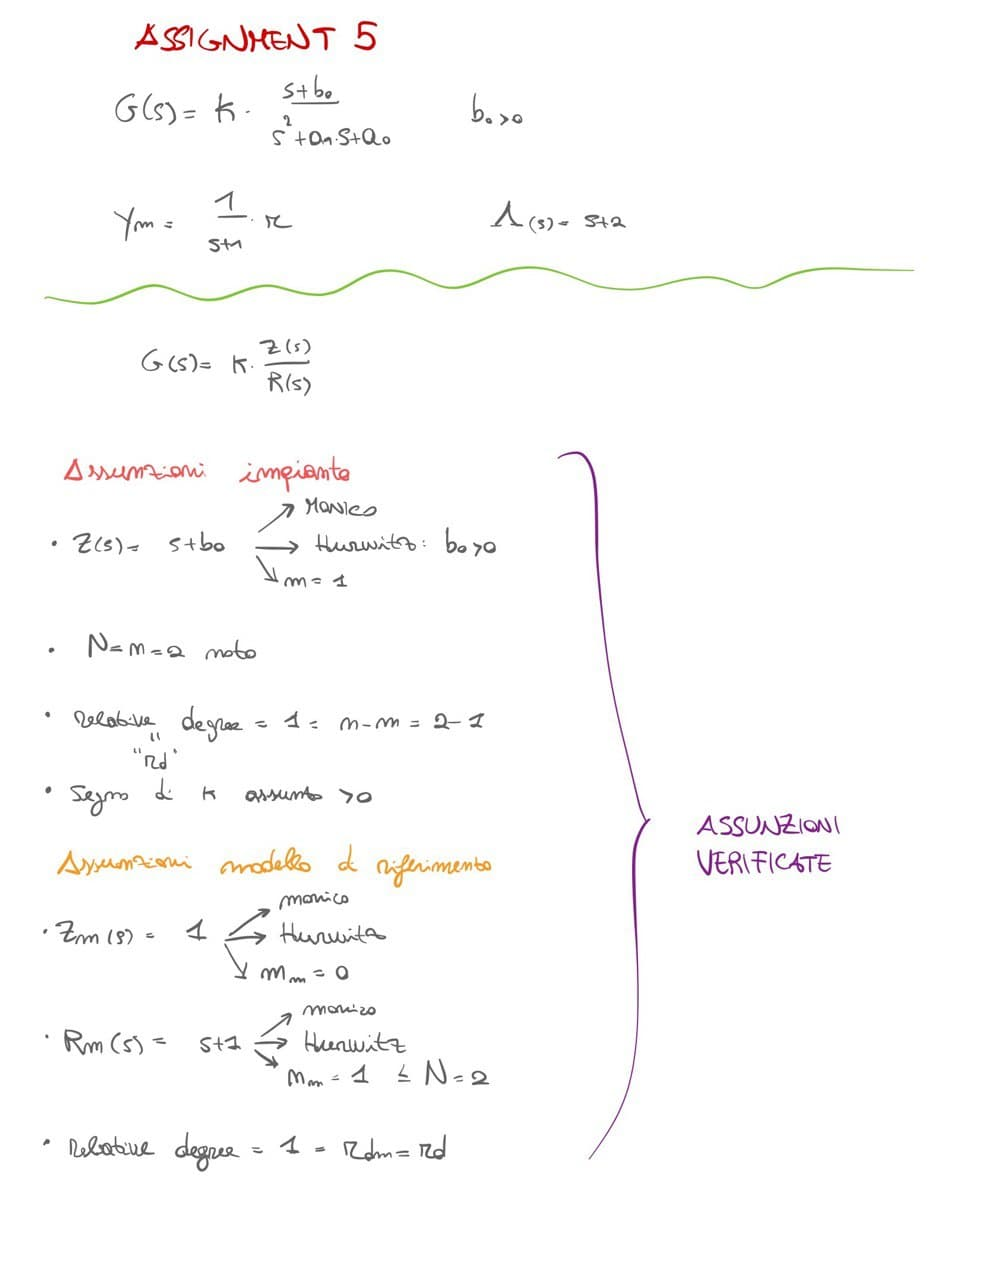 ASSIGNMENT 5
G(s) = K · (s+b₀)/(s²+a₁·s+a₀) b₀>0
Ym = 1/(s+1) · r Λ(s) = s+2
G(s) = K · Z(s)/R(s)
Assunzioni impianto
• Z(s) = s+b₀ → Monico
→ Hurwitz: b₀>0
→ m = 1
• N = n = 2 noto
• Relative degree = 1 = n-m = 2-1
"rd"
• Segno di K assunto >0
Assunzioni modello di riferimento
• Zm(s) = 1 → monico
→ Hurwitz
→ mₘ = 0
• Rm(s) = s+1 → monico
→ Hurwitz
→ nₘ = 1 ≤ N = 2
• Relative degree = 1 = rdm = rd
ASSUNZIONI
VERIFICATE